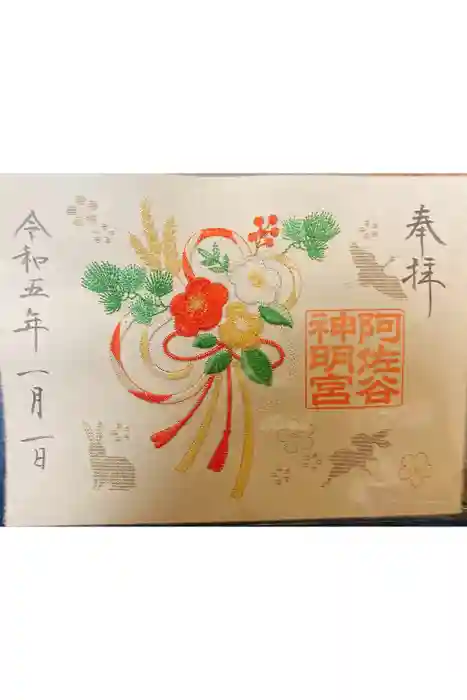 奉拝
阿佐谷
神明宮
令和五年一月一日